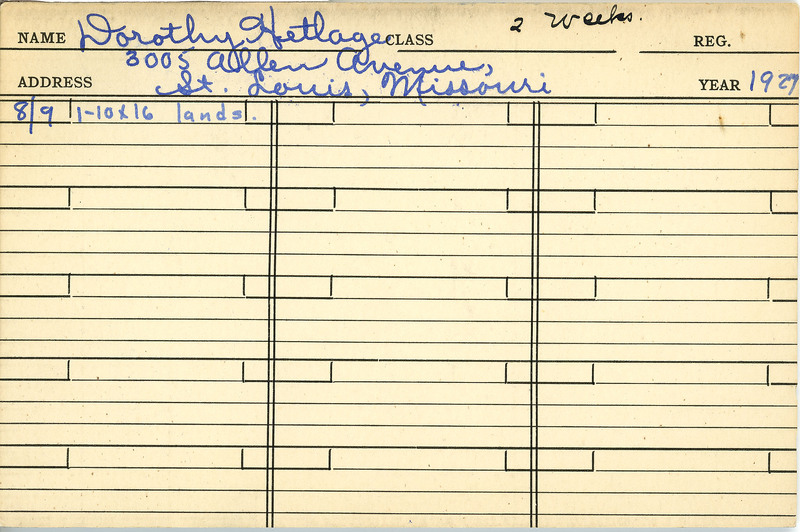 NAME Dorothy Hetlage CLASS 2 weeks. REG.
3005 Allen Avenue,
ADDRESS St. Louis, Missouri YEAR 1927
8/9 1-10x16 lands.